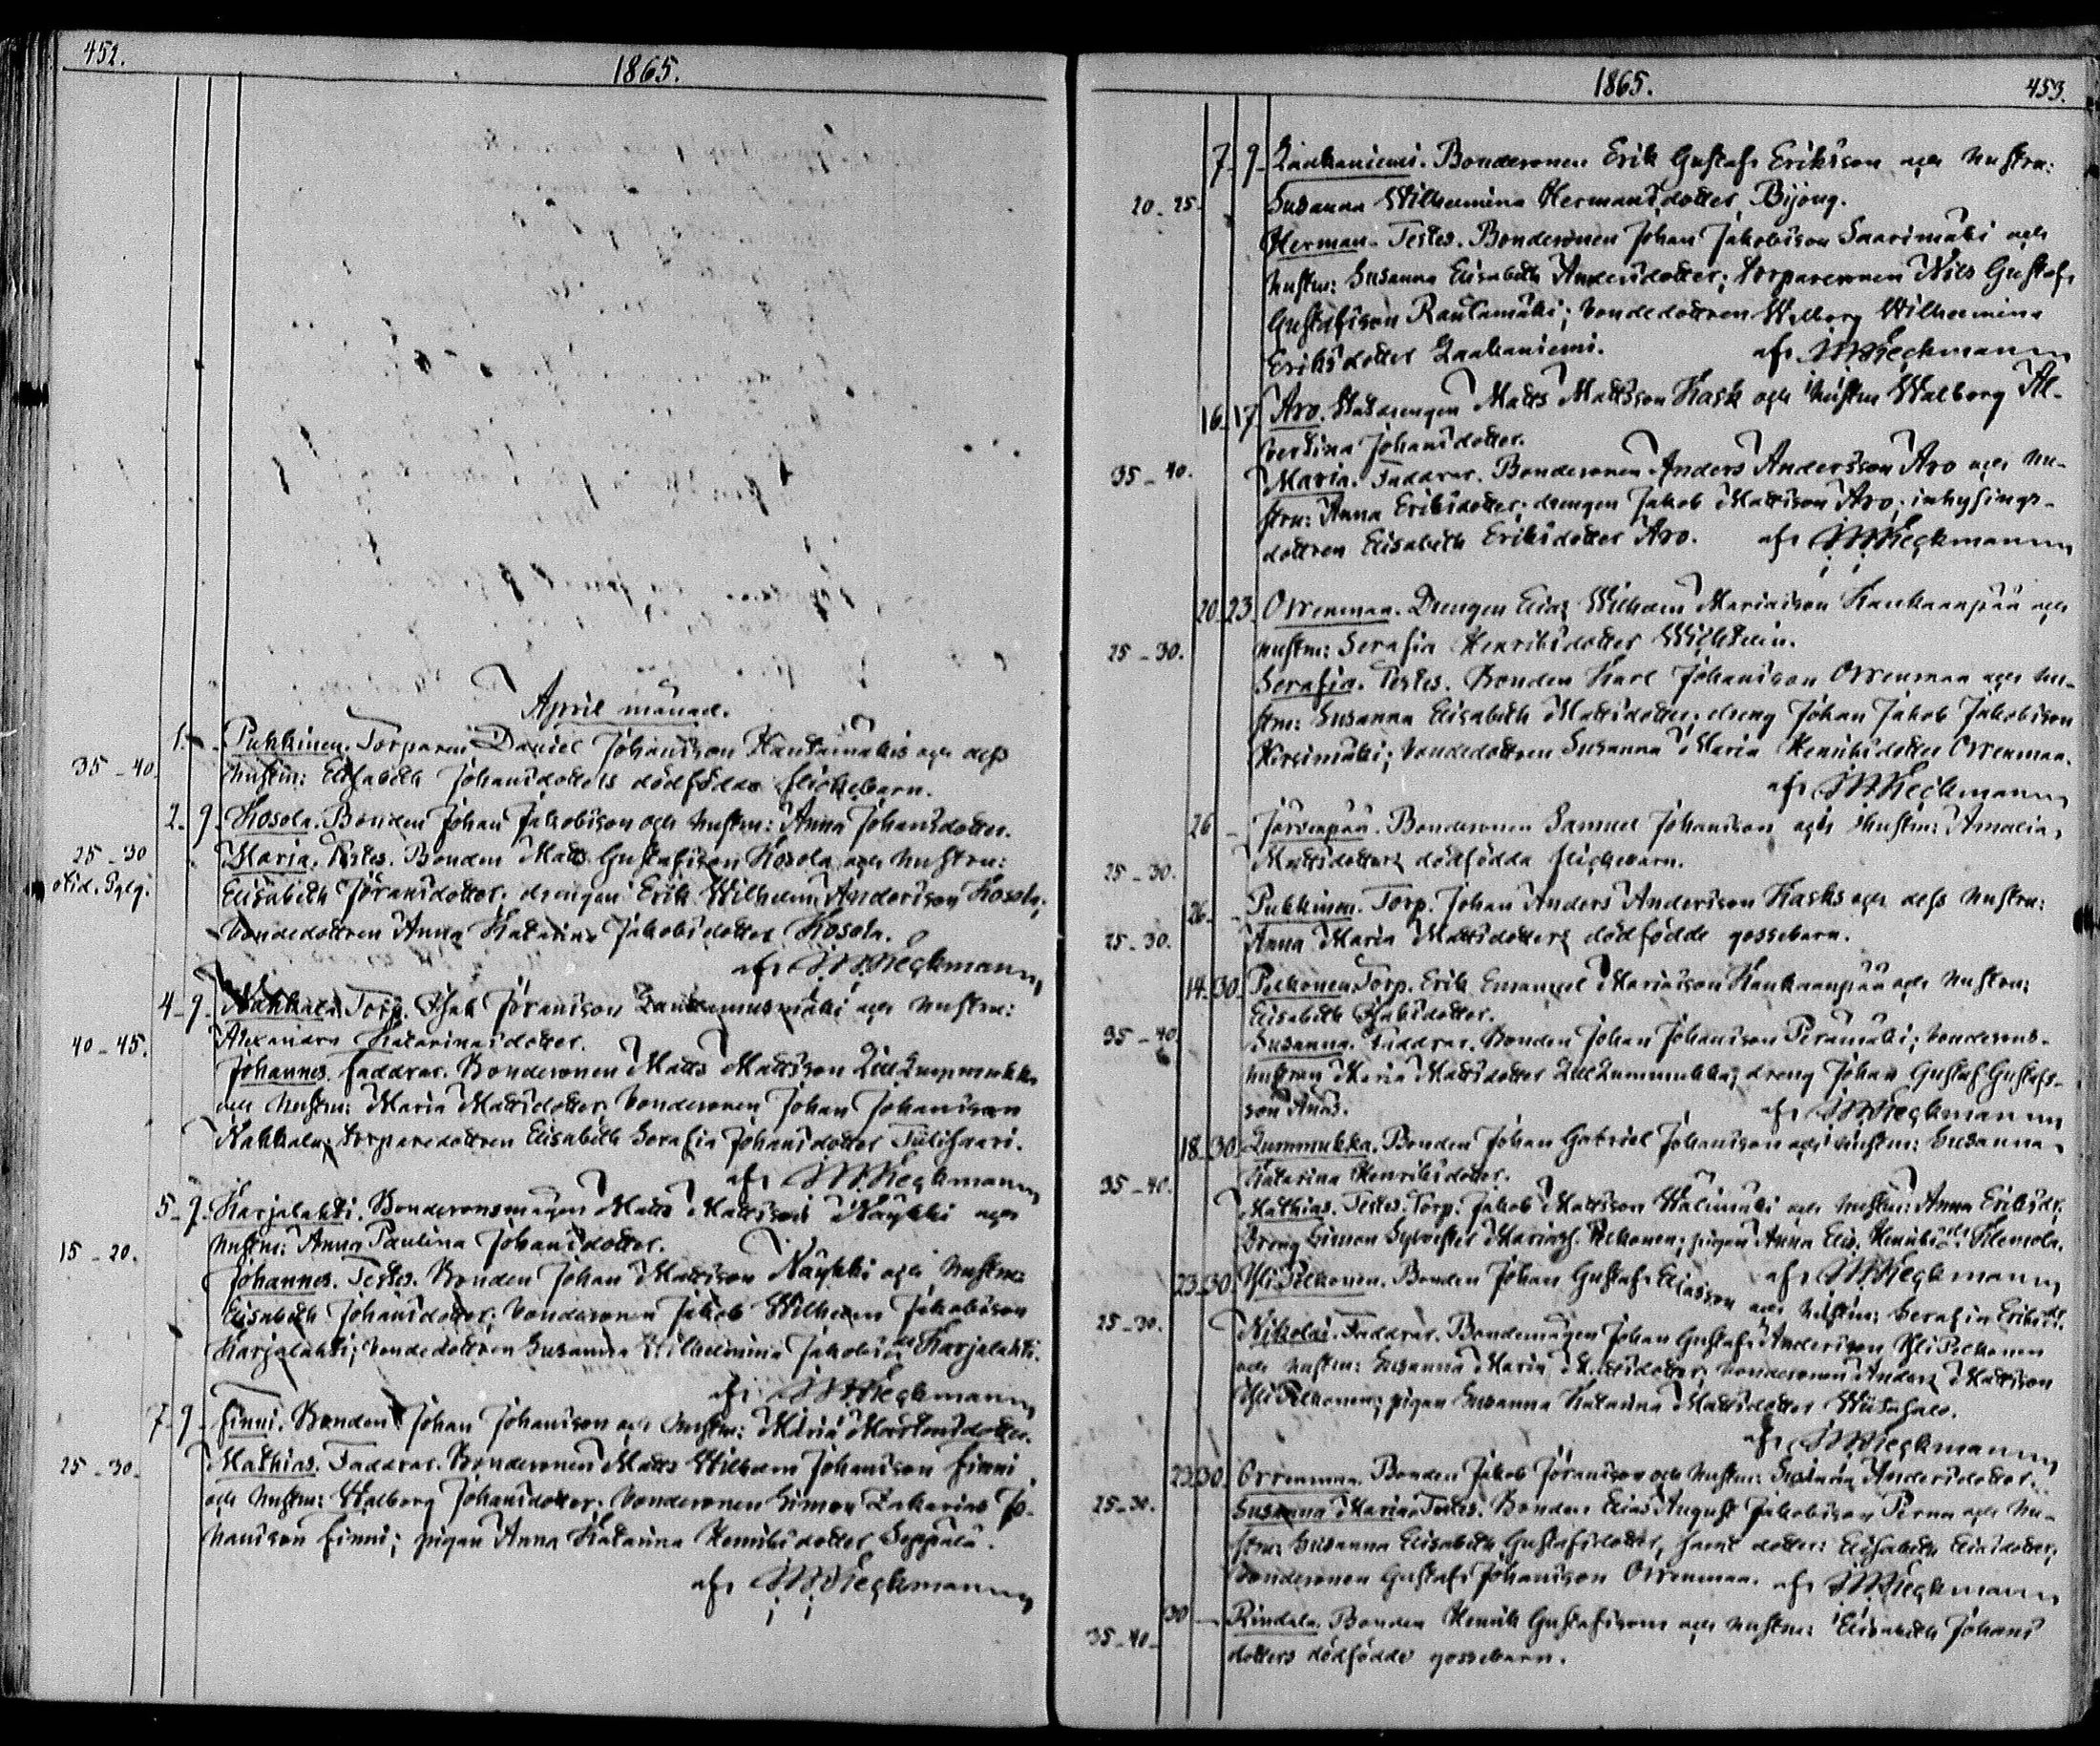 452.
1865.
April månad.
1. Pukkinen. Torparen Daniel Johansson Kantamäkis och dess
35-40. hustru: Elisabeth Johansdotters dödfödda flickebarn.
2. 9. Kosola. Bonden Johan Jakobsson och hustru: Anna Johansdotter.
25-30 Maria. Testes. Bonden Matts Gustafsson Kosola och hustru:
Elisabeth Jöransdotter; drengen Erik Wilhelm Andersson Kosola;
bondedottren Anna Katarina Jakobsdotter Kosola.
af: Heckmann
4. 9. Kakkala. Torp. Isak Jöransson Lankamusmäki och hustru:
40-45. Alexandra Katarinasdotter.
Johannes. Faddrar. Bondesonen Matts Mattsson
och hustru: Maria Mattsdotter; bondesonen Johan Johansson
Kakkala; torparedottren Elisabeth Serafia Johansdotter Tulisaari.
af: Heckmann
5. 9. Karjalahti. Bondesonsmågen Matts Mattsson Näykki och
15-20. hustru: Anna Paulina Johansdotter.
Johannes. Testes. Bonden Johan Mattsson Näykki och hustru:
Elisabeth Johansdotter; bondesonen Jakob Wilhelm Jakobsson
Karjalahti; bondedottren Susanna Wilhelmina Jakobsdr Karjalahti.
af: Heckmann
7. 9. Finni. Bonden Johan Johansson och hustru: Maria Mårtensdotter.
25-30. Mathias. Faddrar. Bondesonen Matts Wilhelm Johansson Finni
och hustru: Walborg Johansdotter; bondesonen Simon Zakarias Jo-
hansson Finni; pigan Anna Katarina Henriksdotter Seppälä.
af: Heckmann
1865.
453.
7. 9. Laakaniemi. Bondesonen Erik Gustaf Eriksson och hustru:
20-25. Susanna Wilhelmina Hermansdotter Bijong.
Herman. Testes. Bondesonen Johan Jakobsson Saarimäki och
hustru: Susanna Elisabeth Andersdotter; torparesonen Nils Gustaf
Gustafsson Rautamäki; bondedottren Walborg Wilhelmina
Eriksdotter Laakaniemi. af: Heckmann
16. 17. Aro. Statdrengen Matts Mattsson Kask och hustru Walborg Al-
bertina Johansdotter.
35-40. Maria. Faddrar. Bondesonen Anders Andersson Aro och hu-
stru: Anna Eriksdotter; drengen Jakob Mattsson Aro; inhysings-
dottren Elisabeth Eriksdotter Aro. af: Heckmann
20. 23. Orrenmaa. Drengen Elias Wilhelm Mariasson Kankaanpää och
25-30. hustru: Serafia Henriksdotter
Serafia. Testes. Bonden Karl Johansson Orrenmaa och hu-
stru: Susanna Elisabeth Mattsdotter; dreng Johan Jakob Jakobsson
Hirsimäki; bondedottren Susanna Maria Henriksdotter Orrenmaa.
af: Heckmann
26 - Järvenpää. Bondesonen Samuel Johansson och hustru: Amalia
25-30. Mattsdotters dödfödda flickebarn.
26. - Pukkinen. Torp. Johan Anders Andersson Kasks och dess hustru:
25-30. Anna Maria Mattsdotters dödfödde gossebarn.
14. 30. Pelkonen. Torp. Erik Emanuel Mariasson Kankaanpää och hustru:
Elisabeth Isaksdotter.
35-40. Susanna. Faddrar. Bonden Johan Johansson Perämäki; bondesons-
hustrun Maria Mattsdotter Lillkummukka; dreng Johan Gustaf Gustafs-
son Anas. af: Heckmann
18. 30. Lummukka. Bonden Johan Gabriel Johansson och hustru: Susanna
35-40. Katarina Henriksdotter.
Mathias. Testes. Torp. Jakob Mattsson Wälimäki och hustru: Anna Eriksdr;
Dreng Simon Sylvester Mariass. Pelkonen; pigan Anna Elis. Henriksdr Klemola.
af: Heckmann
23. 30. Yli Pelkonen. Bonden Johan Gustaf Eliasson och hustru: Serafia Eriksdr.
25-30. Nikolai. Faddrar. Bondemågen Johan Gustaf Andersson Yli Pelkonen
och hustru: Susanna Maria Mattsdotter; bondesonen Anders Mattsson
Yli Pelkonen; pigan Susanna Katarina Mattsdotter
af: Heckmann
23 30 Orrenmaa. Bonden Jakob Jöransson och hustru: Susanna Andersdotter.
25-30. Susanna Maria. Testes. Bonden Elias August Jakobsson Perna och hu-
stru: Susanna Elisabeth Gustafsdotter, samt dotter: Elisabeth Eliasdotter;
bondesonen Gustaf Johansson Orrenmaa. af: Heckmann
30 - Rindala. Bonden Henrik Gustafssons och hustru: Elisabeth Johans
35-40- dotters dödfödde gossebarn.